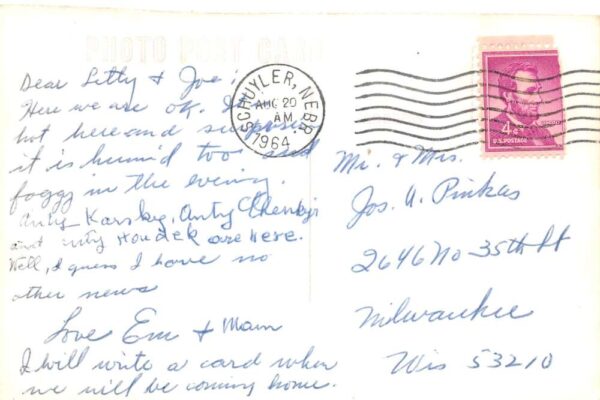 PHOTO POST CARD
Dear Letty & Joe:
Here we are OK. Is
hot here and surprise
it is humid too and
foggy in the evening.
Anty Karsky, Anty Cherny
and Anty Houdek are Here.
Well, I guess I have no
other news
Love Em & Mam
I will write a card when
we will be coming home.
SCHUYLER, NEBR
AUG 20
AM
1964
4¢
U.S. POSTAGE
Mr. & Mrs.
Jos. A. Pinkas
2646 No 35th St
Milwaukee
Wis 53210